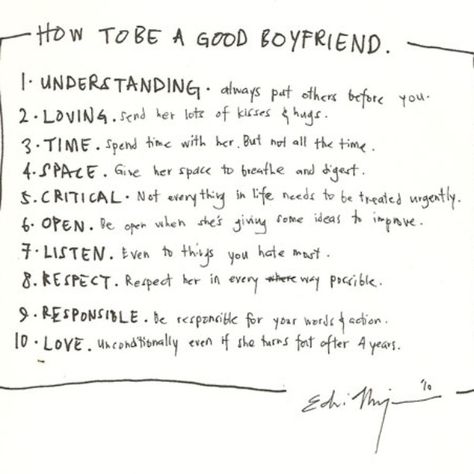 HOW TO BE A GOOD BOYFRIEND.
1. UNDERSTANDING. always put others before you.
2. LOVING. Send her lots of kisses & hugs.
3. TIME. Spend time with her. But not all the time.
4. SPACE. Give her space to breathe and digest.
5. CRITICAL. Not everything in life needs to be treated urgently.
6. OPEN. Be open when she's giving some ideas to improve.
7. LISTEN. Even to things you hate most.
8. RESPECT. Respect her in every where way possible.
9. RESPONSIBLE. Be responsible for your words & action.
10. LOVE. Unconditionally even if she turns fat after 4 years.
'10